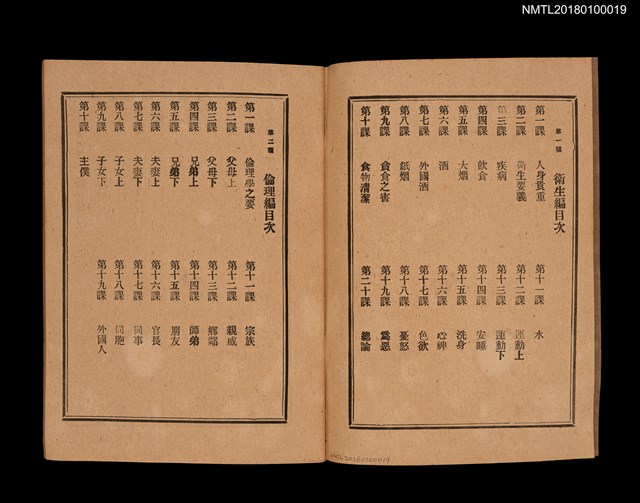 NMTL20180100019
第一種
衛生編目次
第一課 人身貴重
第二課 衛生要義
第三課 疾病
第四課 飲食
第五課 大烟
第六課 酒
第七課 外國酒
第八課 紙烟
第九課 貪食之害
第十課 食物清潔
第十一課 水
第十二課 運動上
第十三課 運動下
第十四課 安睡
第十五課 洗身
第十六課 心神
第十七課 色欲
第十八課 憂怒
第十九課 爲惡
第二十課 總論
第二種
倫理編目次
第一課 倫理學之要
第二課 父母上
第三課 父母下
第四課 兄弟上
第五課 兄弟下
第六課 夫妻上
第七課 夫妻下
第八課 子女上
第九課 子女下
第十課 主僕
第十一課 宗族
第十二課 親戚
第十三課 鄉鄰
第十四課 師弟
第十五課 朋友
第十六課 官長
第十七課 同事
第十八課 同胞
第十九課 外國人
NMTL20180100019